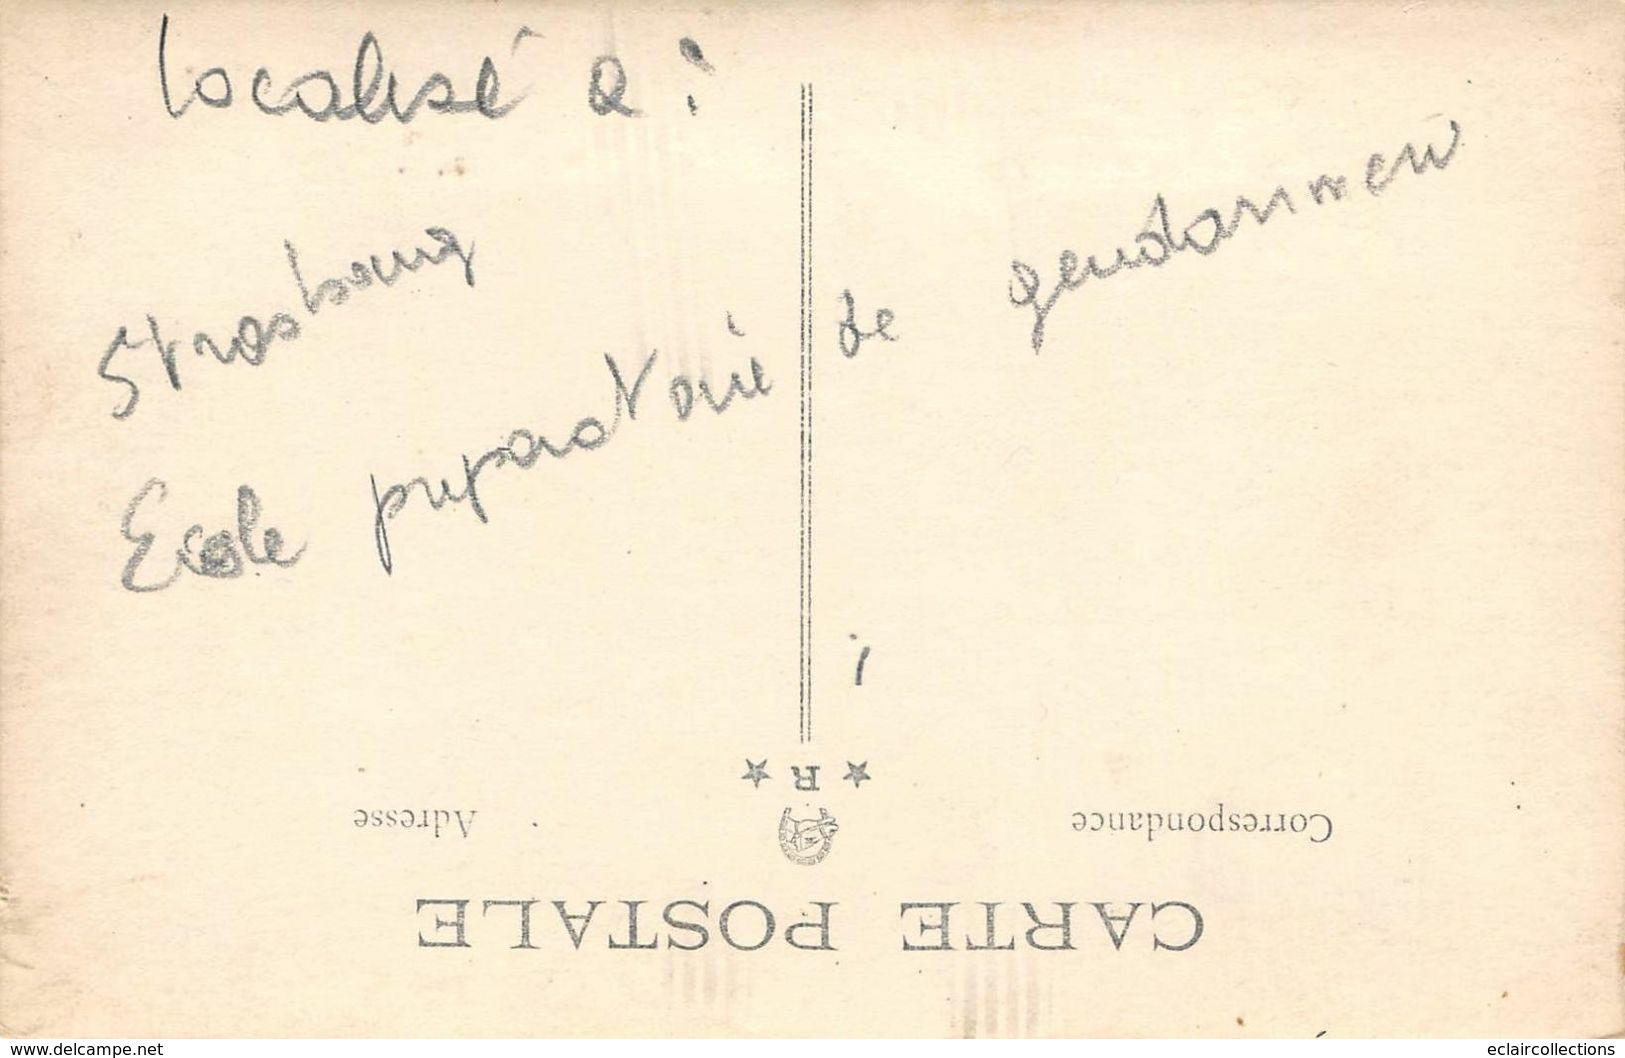 localisé a :
Strasbourg
Ecole preparatoire de gendarmerie
R
Adresse
Correspondance
CARTE POSTALE
www.delcampe.net
eclaircollections